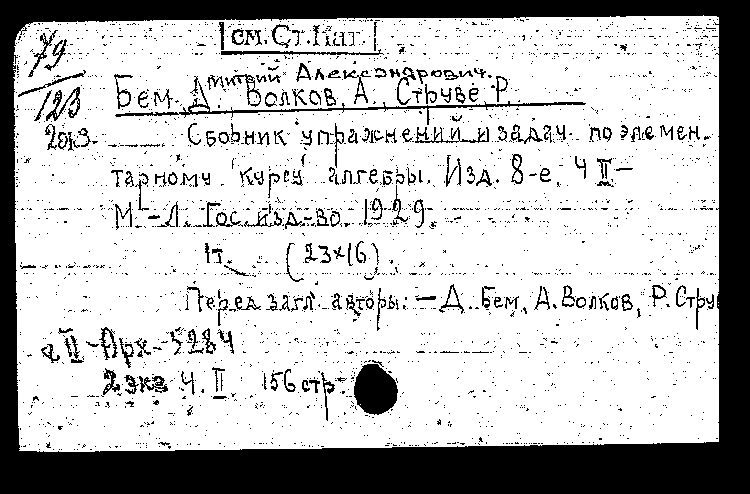 см. Ст. Кат.
79
123
2экз.
митрий Александрович.
Бем, Д., Волков, А., Струве, Р.
Сборник упражнений и задач по элемен-
тарному курсу алгебры. Изд. 8-е. Ч II-
М.-Л. Гос. изд-во. 1929.
1т. (23×16).
Перед загл. авторы: — Д. Бем, А. Волков, Р. Струв
II-Арх-5284
2 экз Ч. II 156 стр.